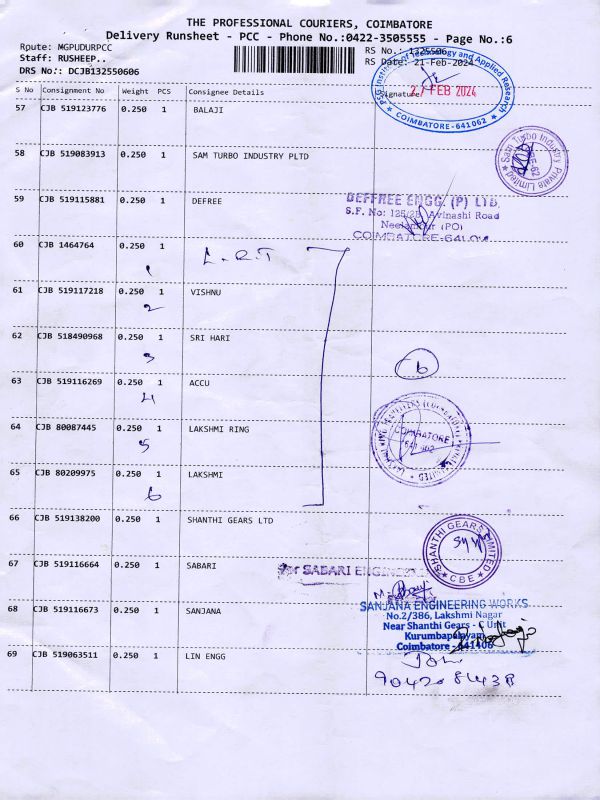 THE PROFESSIONAL COURIERS, COIMBATORE
Delivery Runsheet - PCC - Phone No.:0422-3505555 - Page No.:6
Route: MGPUDURPCC
RS No.: 1325506
Staff: RUSHEEP..
RS Date: 21-Feb-2024
DRS No:: DCJB132550606
S No Consignment No Weight PCS Consignee Details Signature
PSG Institute of Technology and Applied Research
27 FEB 2024
COIMBATORE-641062
57 CJB 519123776 0.250 1 BALAJI
58 CJB 519083913 0.250 1 SAM TURBO INDUSTRY PLTD
Sam Turbo Industry Private Limited
59 CJB 519115881 0.250 1 DEFREE
DEFFREE ENGG. (P) LTD.
S.F. No: 125/2B, Avinashi Road
Neelambur (PO)
COIMBATORE-641
60 CJB 1464764 0.250 1
1
61 CJB 519117218 0.250 1 VISHNU
2
62 CJB 518490968 0.250 1 SRI HARI
3
6
63 CJB 519116269 0.250 1 ACCU
4
64 CJB 80087445 0.250 1 LAKSHMI RING
COIMBATORE
5
65 CJB 80209975 0.250 1 LAKSHMI
6
66 CJB 519138200 0.250 1 SHANTHI GEARS LTD
SHANTHI GEARS LIMITED
CBE
67 CJB 519116664 0.250 1 SABARI
For SABARI ENGINEE
68 CJB 519116673 0.250 1 SANJANA
SANJANA ENGINEERING WORKS
No.2/386, Lakshmi Nagar
Near Shanthi Gears - C Unit
Kurumbapalayam
Coimbatore - 641406
69 CJB 519063511 0.250 1 LIN ENGG